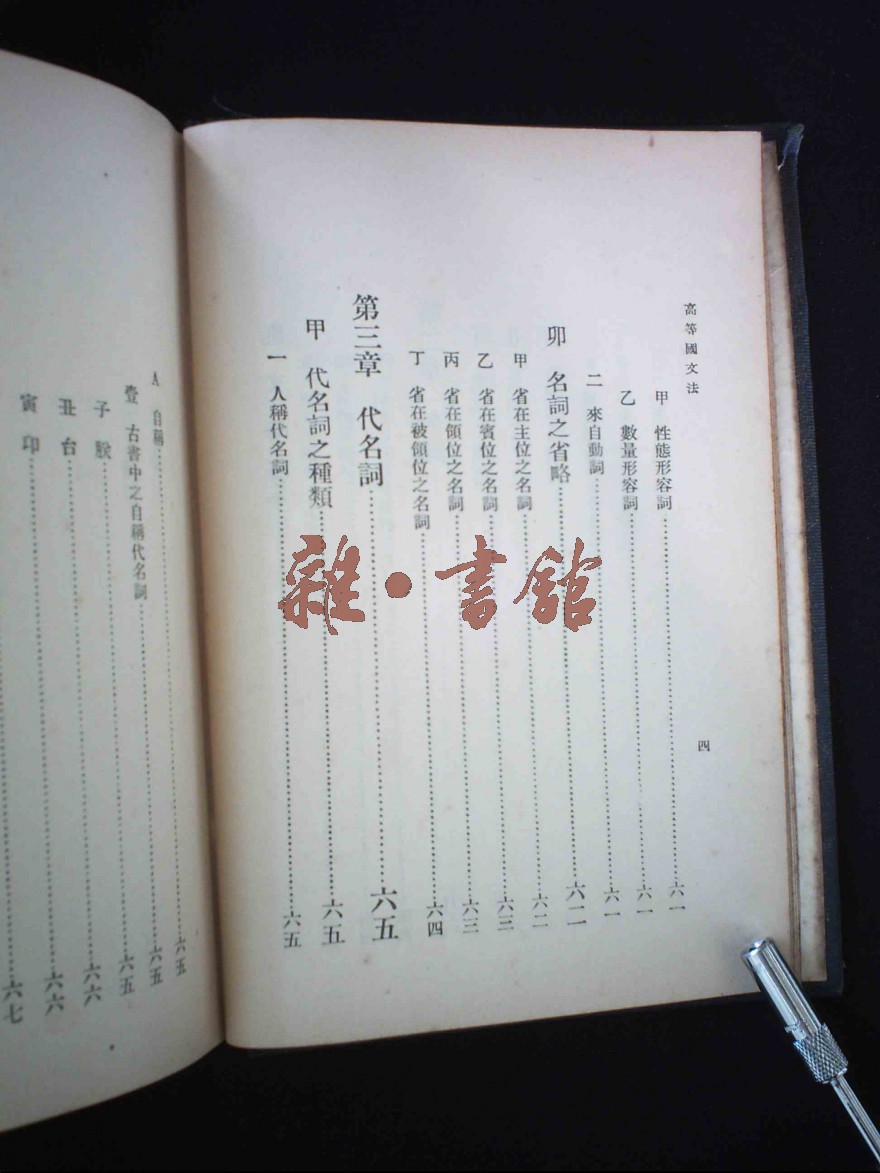 高等國文法
四
甲 性態形容詞……六一
乙 數量形容詞……六一
二 來自動詞……六一
卯 名詞之省略……六二
甲 省在主位之名詞……六二
乙 省在賓位之名詞……六三
丙 省在領位之名詞……六三
丁 省在被領位之名詞……六四
第三章 代名詞……六五
甲 代名詞之種類……六五
一 人稱代名詞……六五
A 自稱……六五
壹 古書中之自稱代名詞……六五
子 朕……六六
丑 台……六六
寅 卬……六七
雜·書館